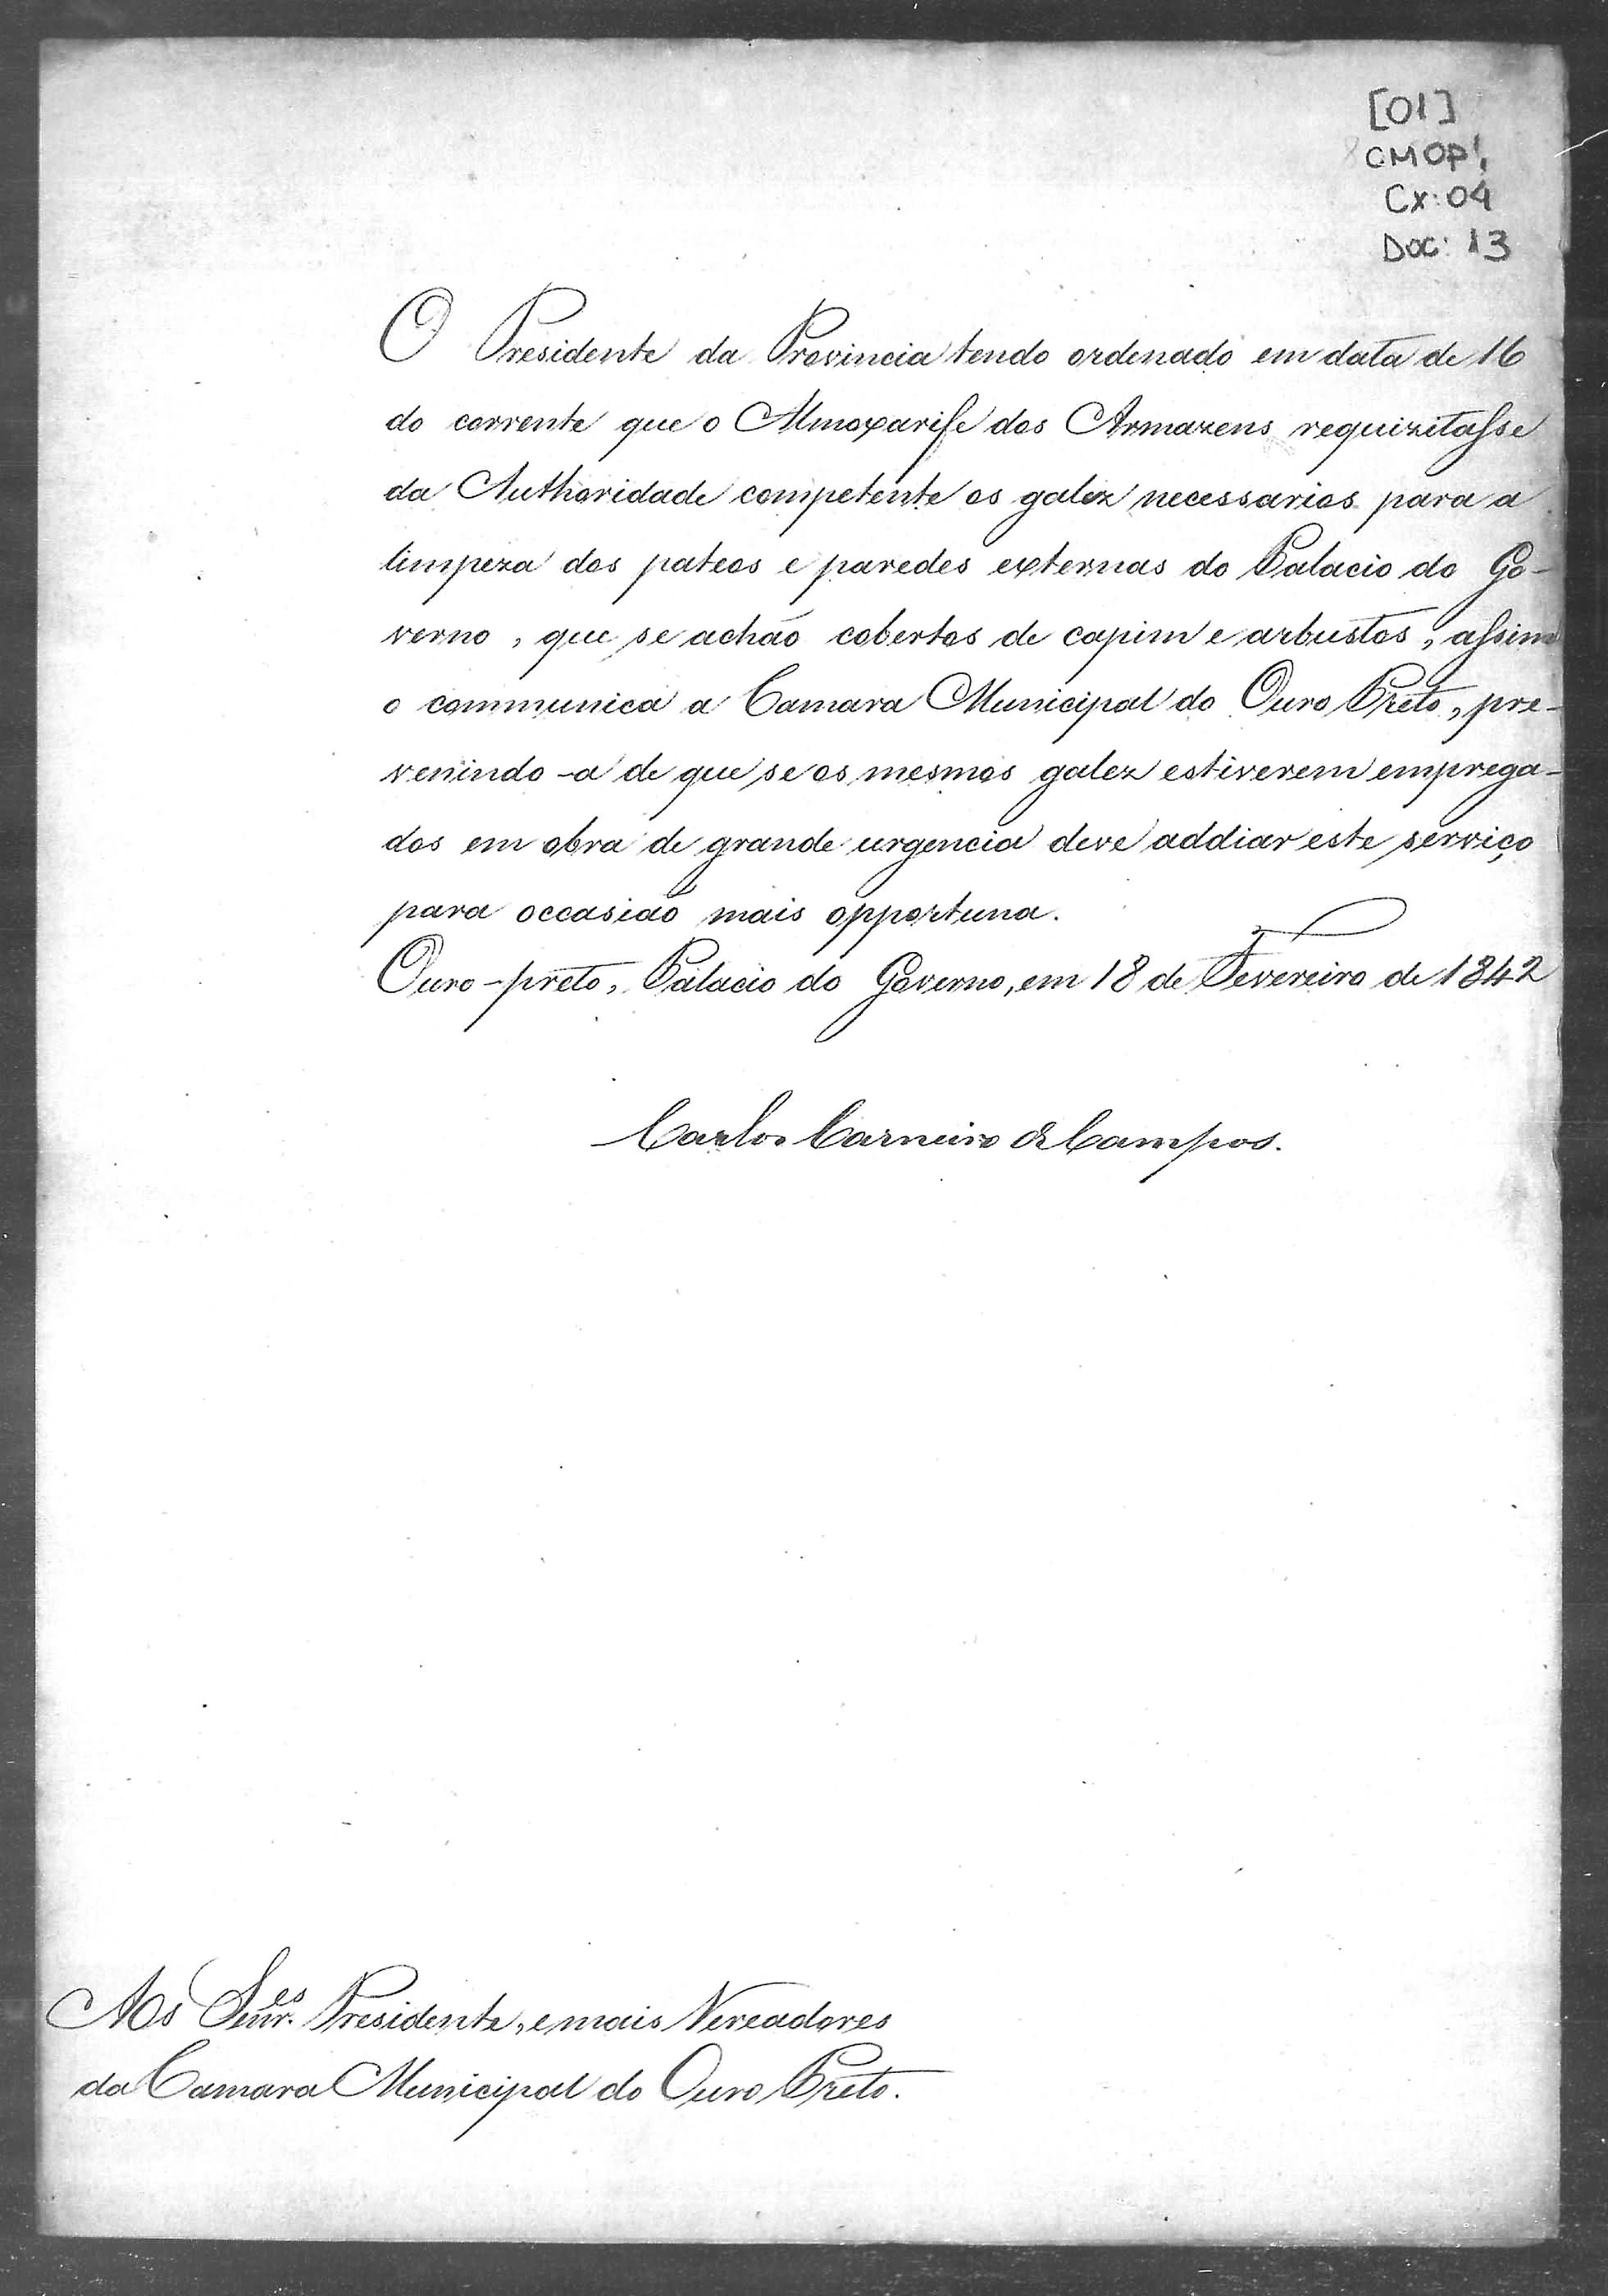 [01]
CMOP!
Cx: 04
Doc: 13
O Presidente da Provincia tendo ordenado em data de 16
do corrente que o Almoxarife dos Armazens requizitasse
da Authoridade competente os galez necessarios para a
limpeza dos pateos e paredes externas do Palacio do Go-
verno, que se achão cobertos de capim e arbustos, assim
o communica a Camara Municipal do Ouro Preto, pre-
venindo-a de que se os mesmos galez estiverem emprega-
dos em obra de grande urgencia deve addiar este serviço
para occasião mais opportuna.
Ouro-preto, Palacio do Governo, em 18 de Fevereiro de 1842
Carlos Carneiro de Campos.
Aos Senr.es Presidente, e mais Vereadores
da Camara Municipal do Ouro Preto.